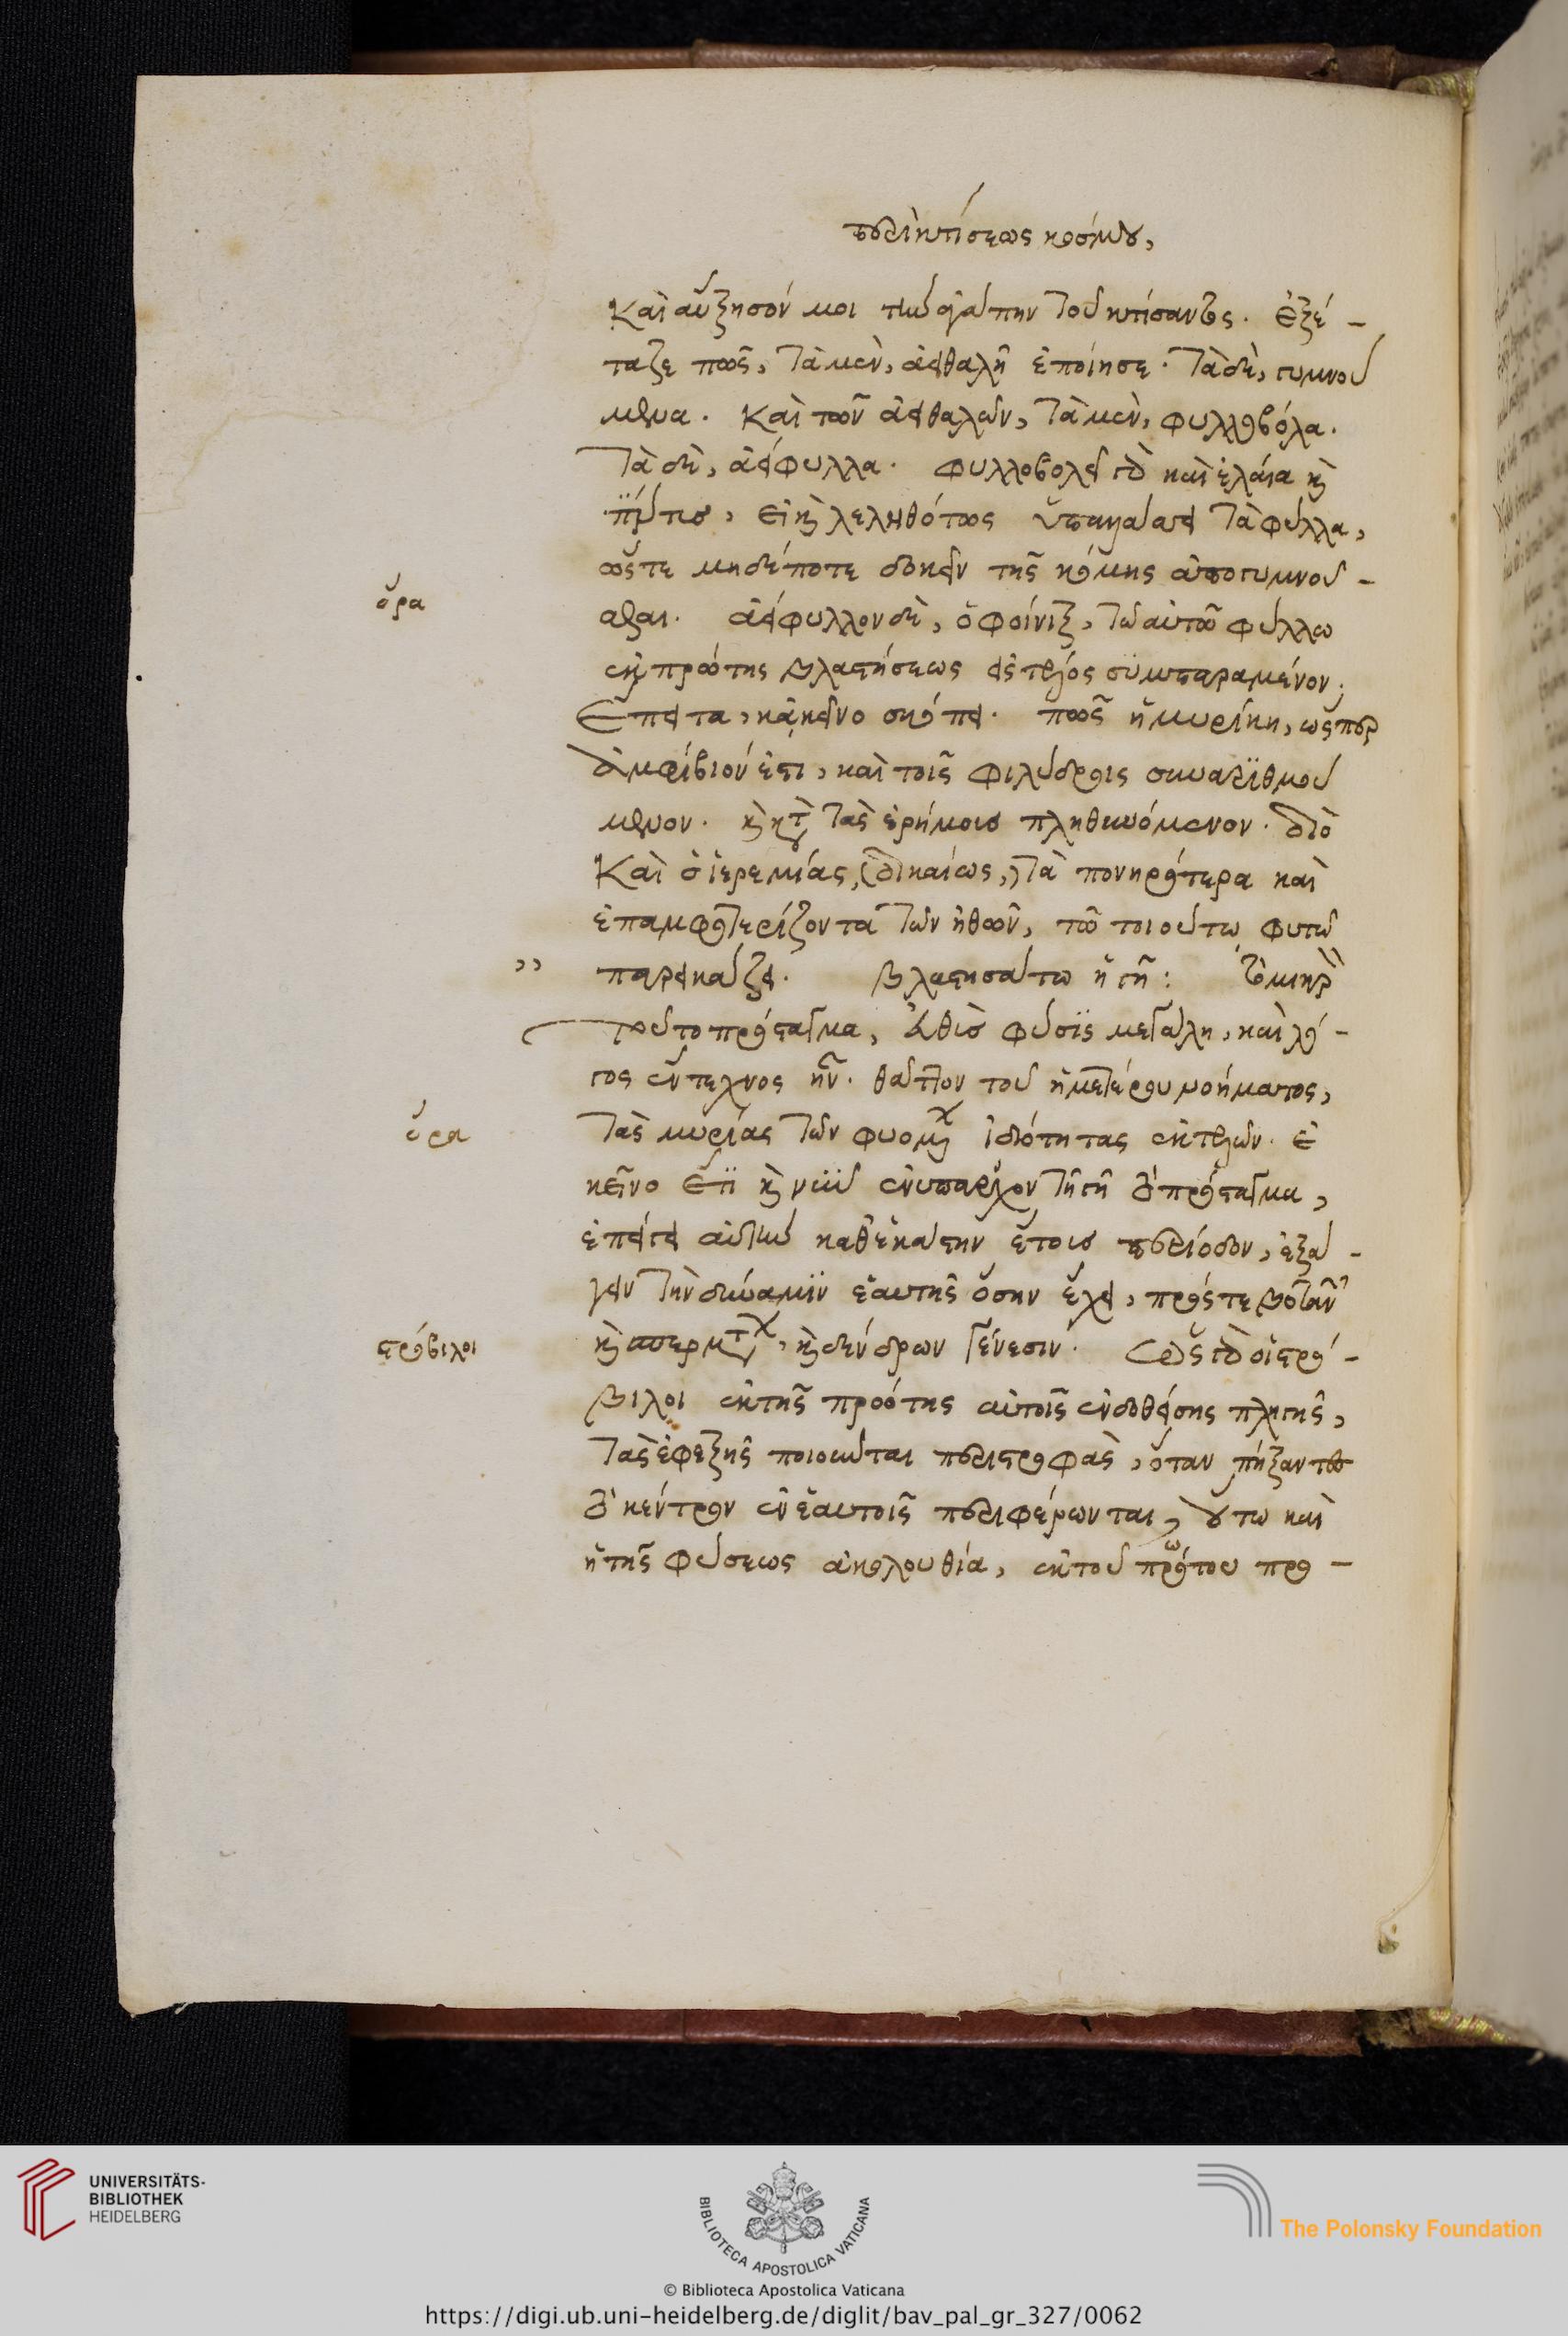 περὶ κτίσεως κόσμου,
καὶ αὔξησόν μοι τὴν ἀγάπην τοῦ κτίσαντος. ἐξέ-
ταζε πῶς, τὰ μὲν, ἀειθαλῆ ἐποίησε. τὰ δὲ, γυμνού
μενα. καὶ τῶν ἀειθαλῶν, τὰ μὲν, φυλλοβόλα.
τὰ δὲ, ἀείφυλλα. φυλλοβολεῖ γὰρ καὶ ἐλαία καὶ
πίτυσ, εἰ καὶ λεληθότως ὑπαλλάσσει τὰ φύλλα,
ὥστε μηδέποτε δοκεῖν τῆς κόμης ἀπογυμνοῦ-
σθαι. ἀείφυλλον δὲ, ὁ φοίνιξ, τῶ αὐτῶ φύλλω
ἐκ πρώτης βλαστήσεως εἰς τέλος συμπαραμένον.
Ἔπειτα, κἀκεῖνο σκόπει. πῶς ἡ μυρίκη, ὥσπερ
ἀμφίβιόν ἐστι, καὶ τοῖς φιλύδροις συναριθμού
μενον. καὶ κατὰ τὰς ἐρήμουσ πληθυνόμενον. διὸ
καὶ ὁ ἱερεμίας, (δικαίως,) τὰ πονηρότερα καὶ
ἐπαμφοτερίζοντα τῶν ἠθῶν, τῶ τοιούτω φυτῶ
παρεικάζει. βλαστησάτω ἡ γῆ: τὸ μικρὸν
τοῦτο πρόσταγμα, εὐθὺσ φύσις μεγάλη, καὶ λό-
γος ἔντεχνος ἦν. θᾶττον τοῦ ἡμετέρου νοήματος,
τὰς μυρίας τῶν φυομένων ἰδιότητας ἐκτελῶν. ἐ
κεῖνο ἔτι καὶ νῦν ἐνυπάρχον τῆ γῆ τὸ πρόσταγμα,
ἐπείγει αὐτὴν καθ' ἑκάστην ἔτουσ περίοδον, ἐξά-
γειν τὴν δύναμιν ἑαυτῆς ὅσην ἔχει, πρός τε βοτανῶν
καὶ σπερμάτων, καὶ δένδρων γένεσιν. ὡς γὰρ οἱ στρό-
βιλοι ἐκ τῆς πρώτης αὐτοῖς ἐνδοθείσης πληγῆς,
τὰς ἐφεξῆς ποιοῦνται περιστροφὰς, ὅταν πήξαντες
τὸ κέντρον ἐν ἑαυτοῖς περιφέρωνται, οὕτω καὶ
ἡ τῆς φύσεως ἀκολουθία, ἐκ τοῦ πρώτου προ-
ὅρα
,,
ὅρα
στρόβιλοι
UNIVERSITÄTS-
BIBLIOTHEK
HEIDELBERG
BIBLIOTECA APOSTOLICA VATICANA
© Biblioteca Apostolica Vaticana
The Polonsky Foundation
https://digi.ub.uni-heidelberg.de/diglit/bav_pal_gr_327/0062